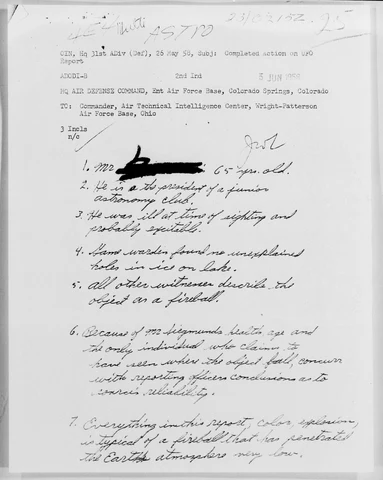 ASTRO
CTN, Hq 31st ADiv (Def), 26 May 58, Subj: Completed Action on UFO
Report
ADODI-B 2nd Ind 3 JUN 1958
HQ AIR DEFENSE COMMAND, Ent Air Force Base, Colorado Springs, Colorado
TO: Commander, Air Technical Intelligence Center, Wright-Patterson
Air Force Base, Ohio
3 Incls
n/c
1. Mr 65 yrs. old.
2. He is a the president of a junior
astronomy club.
3. He was ill at time of sighting and
probably excitable.
4. Game warden found no unexplained
holes in ice on lake.
5. All other witnesses describe the
object as a fireball.
6. Because of Mr health, age and
the only individual who claims to
have seen where the object , concur
with reporting officers conclusions as to
reliability.
7. Everything in this report, color, explosion,
is typical of a fireball that has penetrated
the Earth atmosphere very low.